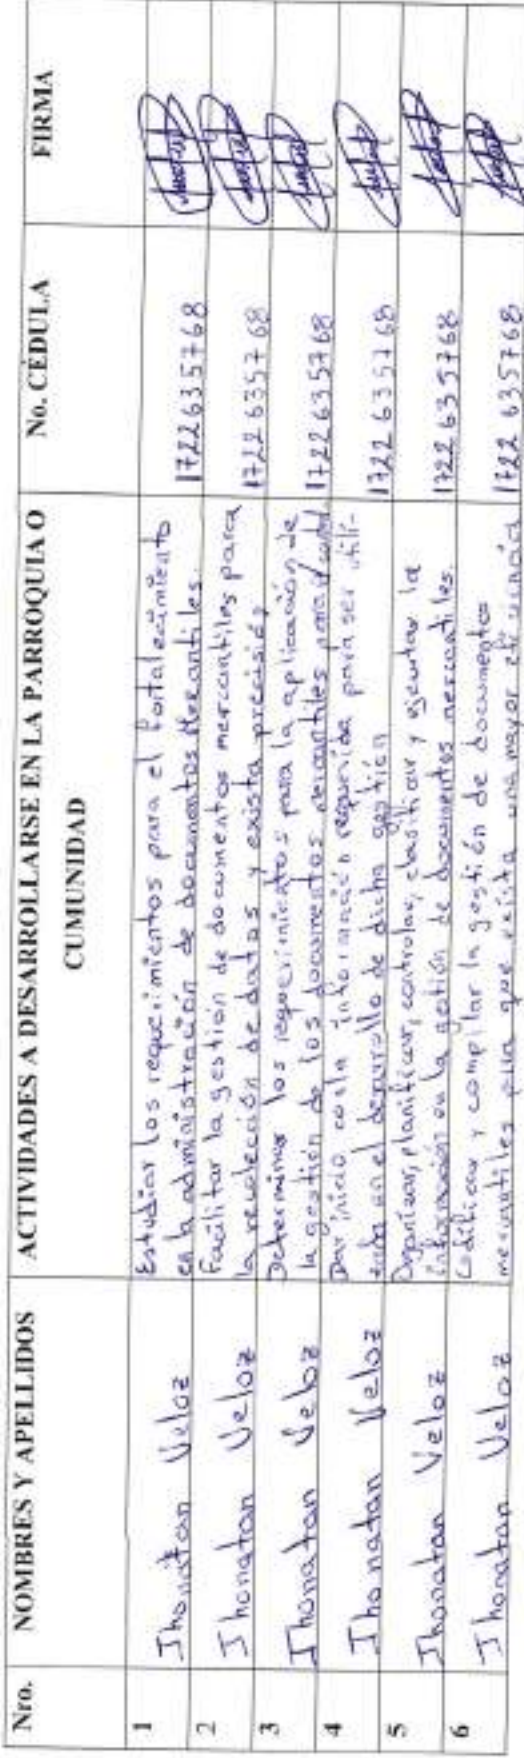 Nro. NOMBRES Y APELLIDOS ACTIVIDADES A DESARROLLARSE EN LA PARROQUIA O No. CÉDULA FIRMA
CUMUNIDAD
1 Jhonatan Veloz Estudiar los requerimientos para el fortalecimiento
en la administración de documentos Mercantiles. 1722635768
2 Jhonatan Veloz Facilitar la gestión de documentos mercantiles para
la recolección de datos y exista precisión 1722635768
3 Jhonatan Veloz Determinar los requerimientos para la aplicación de
la gestión de los documentos mercantiles para el control 1722635768
4 Jhonatan Veloz Dar inicio con la información requerida para ser utili-
en el desarrollo de dicha gestión 1722635768
5 Jhonatan Veloz Organizar, planificar, controlar, clasificar y ejecutar la
información en la gestión de documentos mercantiles. 1722635768
6 Jhonatan Veloz Codificar y compilar la gestión de documentos
mercantiles para que exista una mayor eficiencia 1722635768